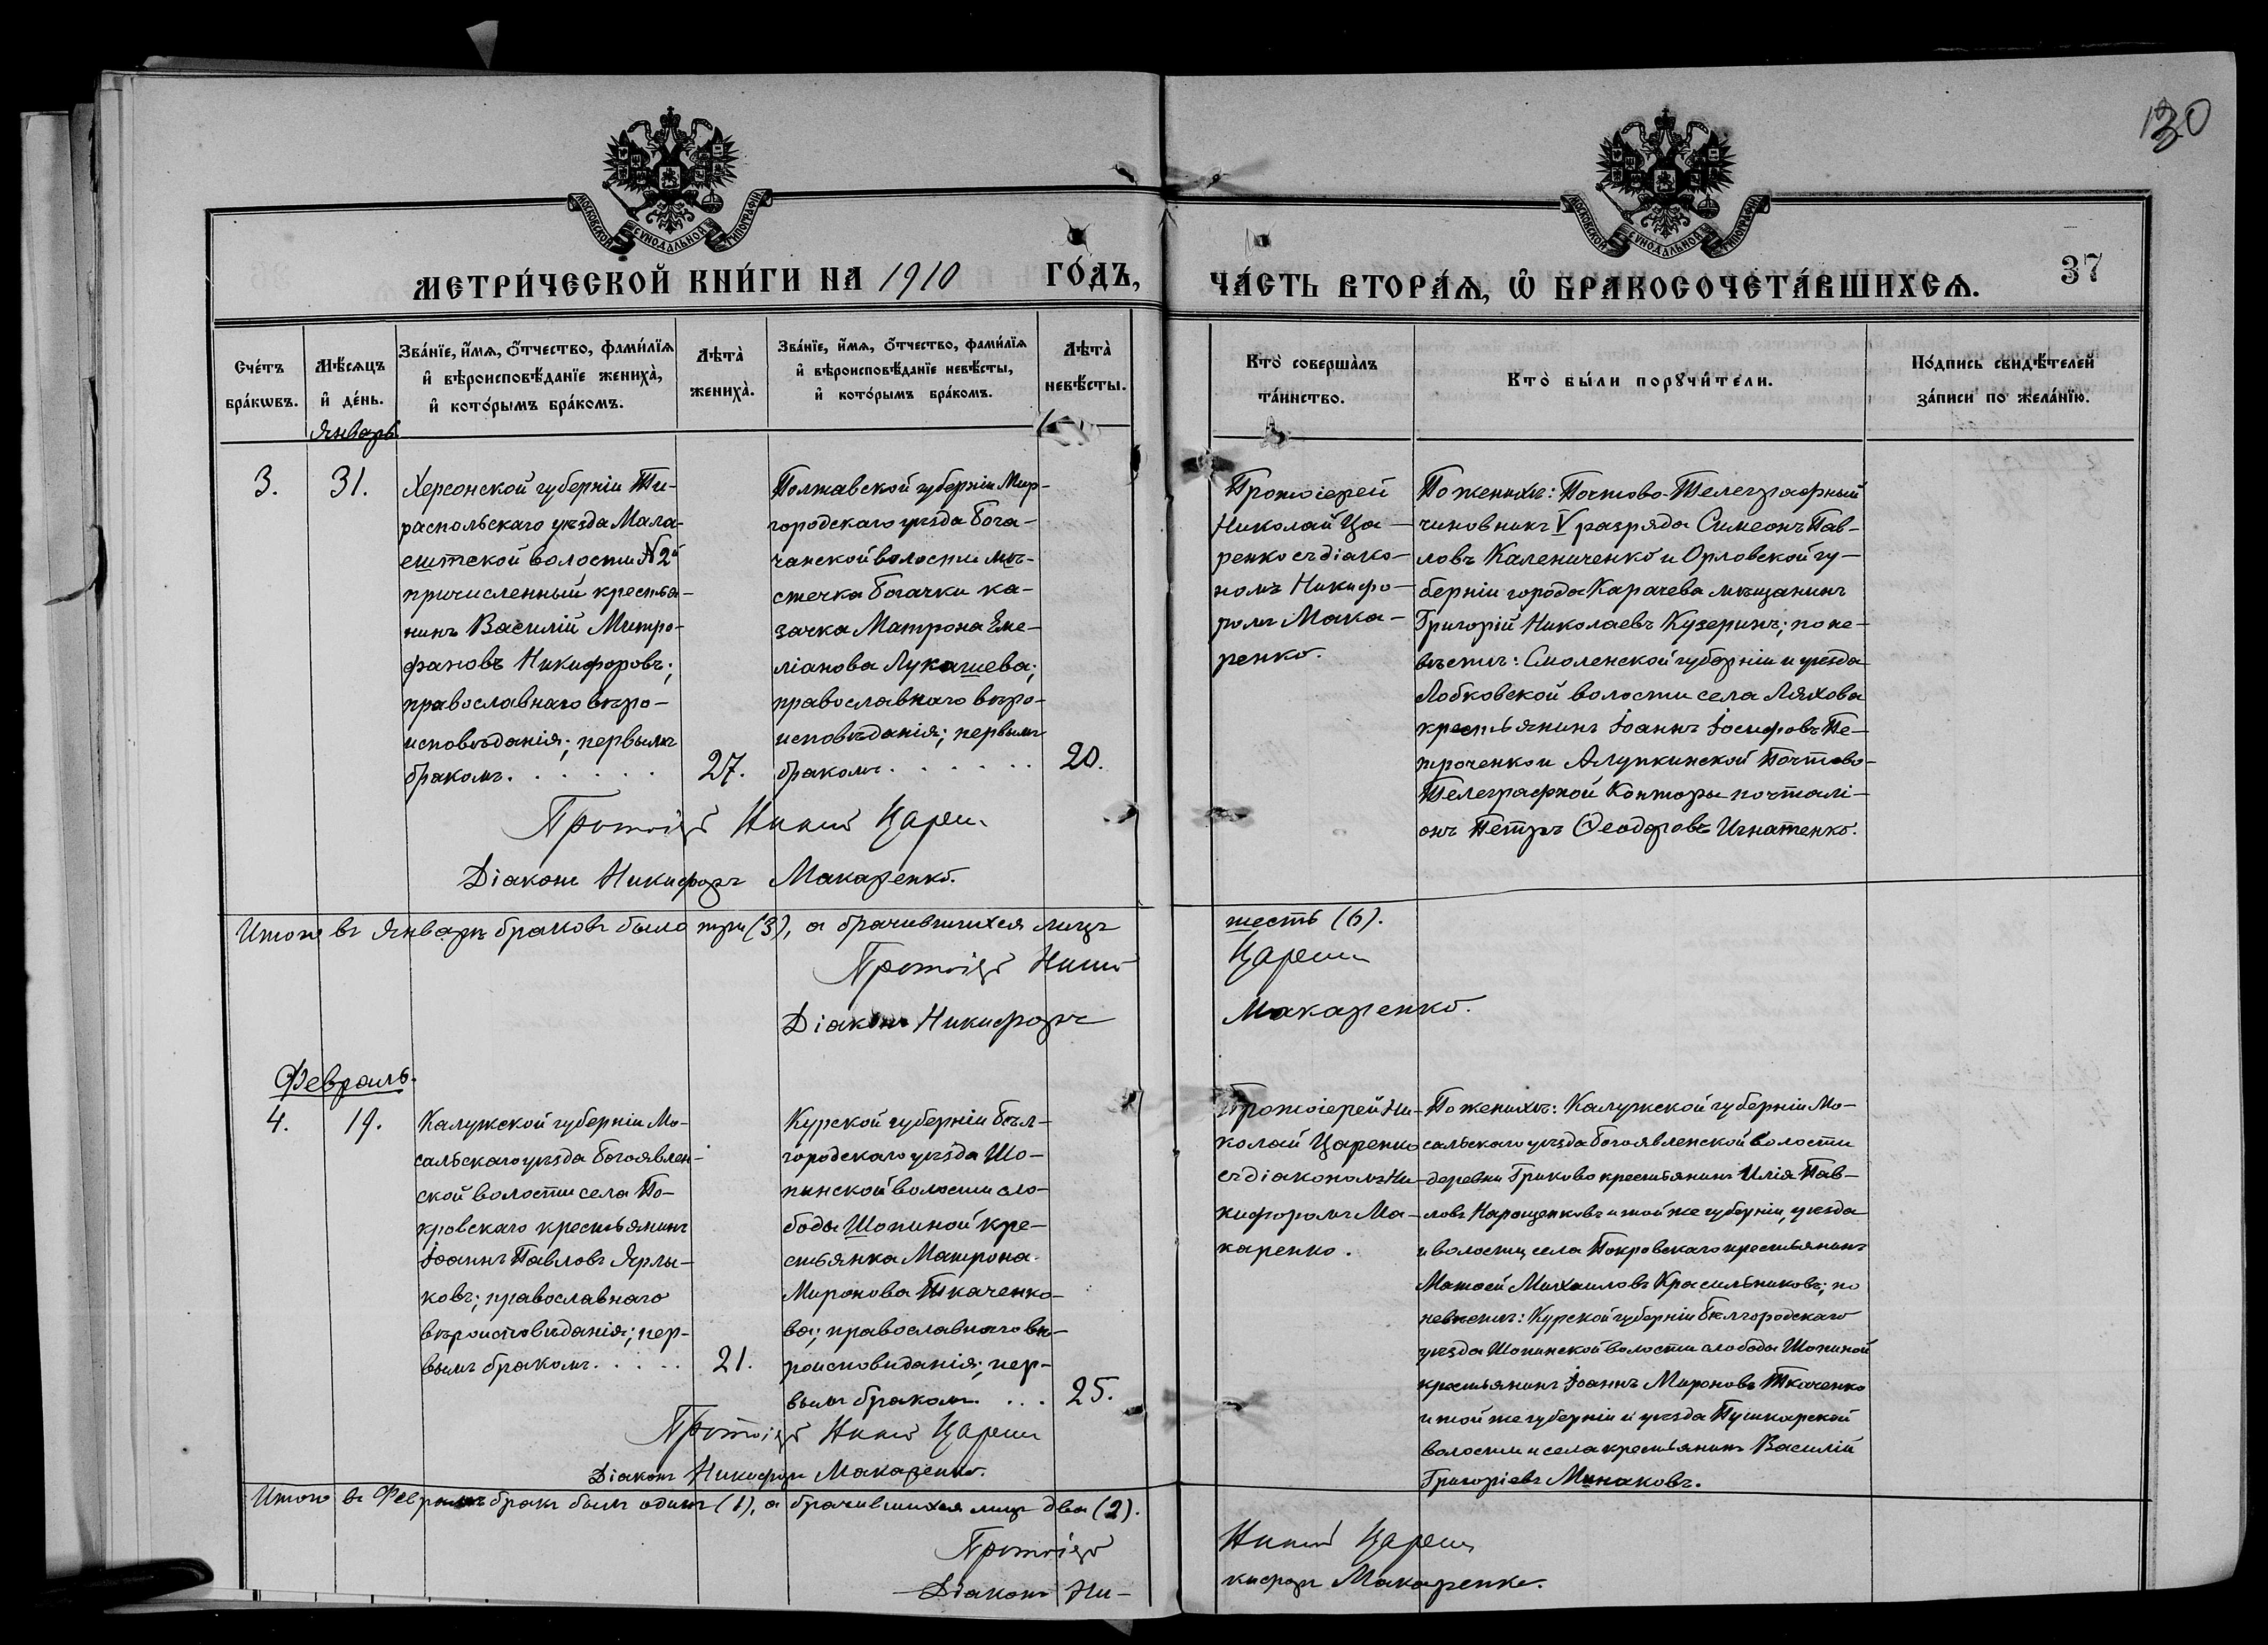 130
МОСКОВСКОЙ СѴНОДАЛЬНОЙ ТИПОГРАФІИ
МОСКОВСКОЙ СѴНОДАЛЬНОЙ ТИПОГРАФІИ
МЕТРИ́ЧЕСКОЙ КНИ́ГИ НА 1910 ГО́ДЪ,
ЧА́СТЬ ВТОРА́Ѧ, Ѽ БРАКОСОЧЕТА́ВШИХСѦ.
37
Сче́тъ
бра́кѡвъ.
Мѣ́сѧцъ
и҆ де́нь.
Зва́нїе, и҆́мѧ, ѻ҆́тчество, фами́лїѧ
и҆ вѣроисповѣ́данїе жениха̀,
и҆ кото́рымъ бра́комъ.
Лѣ̀та
жениха̀.
Зва́нїе, и҆́мѧ, ѻ҆́тчество, фами́лїѧ
и҆ вѣроисповѣ́данїе невѣ́сты,
и҆ кото́рымъ бра́комъ.
Лѣ̀та
невѣ́сты.
Кто̀ соверша̀лъ
та́инство.
Кто̀ бы́ли порꙋчи́тели.
По́дпись свидѣ́телей
за́писи по жела́нїю.
Январь
3.
31.
Херсонской губерніи Ти-
распольскаго уѣзда Мала-
ештской волости №2й
причисленный крестья-
нинъ Василій Митро-
фановъ Никифоровъ;
православнаго вѣро-
исповѣданія; первымъ
бракомъ. . . . . .
27.
Полтавской губерніи Мир-
городскаго уѣзда Бога-
чанской волости мѣ-
стечка Богачки ка-
зачка Матрона Еме-
ліанова Лукашева;
православнаго вѣро-
исповѣданія; первымъ
бракомъ. . . . . .
20.
Протоіерей
Николай Ца-
ренко съ діако-
номъ Никифо-
ромъ Мака-
ренко.
По женихѣ: Почтово-Телеграфный
чиновникъ V разряда Симеонъ Пав-
ловъ Калениченко и Орловской гу-
берніи города Карачева мѣщанинъ
Григорій Николаевъ Кузеринъ; по не-
вѣстѣ: Смоленской губерніи и уѣзда
Лобковской волости села Ляхова
крестьянинъ Іоаннъ Іосифовъ Пе-
троченко и Алупкинской Почтово-
Телеграфной Конторы почталі-
онъ Петръ Ѳеодоровъ Игнатенко.
Діаконъ Никифоръ Макаренко.
Итого въ Январѣ браковъ было три (3), а брачившихся лицъ шесть (6).
Діаконъ Никифоръ Макаренко.
Февраль.
4.
19.
Калужской губерніи Мо-
сальскаго уѣзда Богоявлен-
ской волости села По-
кровскаго крестьянинъ
Іоаннъ Павловъ Ярлы-
ковъ; православнаго
вѣроисповѣданія; пер-
вымъ бракомъ. . . . .
21.
Курской губерніи Бѣл-
городскаго уѣзда Шо-
пинской волости сло-
боды Шопиной кре-
стьянка Матрона
Миронова Ткаченко-
ва; православнаго вѣ-
роисповѣданія; пер-
вымъ бракомъ. . . .
25.
Протоіерей Ни-
колай Царенко
съ діакономъ Ни-
кифоромъ Ма-
каренко.
По женихѣ: Калужской губерніи Мо-
сальскаго уѣзда Богоявленской волости
деревни Гриково крестьянинъ Илія Пав-
ловъ и той же губерніи, уѣзда
и волости, села Покровскаго крестьянинъ
Матѳей Михаиловъ Красильниковъ; по
невѣстѣ: Курской губерніи Бѣлгородскаго
уѣзда Шопинской волости слободы Шопиной
крестьянинъ Іоаннъ Мироновъ Ткаченко
и той же губерніи и уѣзда Пушкарской
волости и села крестьянинъ Василій
Григоріевъ Минаковъ.
Діаконъ Никифоръ Макаренко.
Итого въ Февралѣ бракъ былъ одинъ (1), а брачившихся лицъ два (2).
Діаконъ Ни-
кифоръ Макаренко.